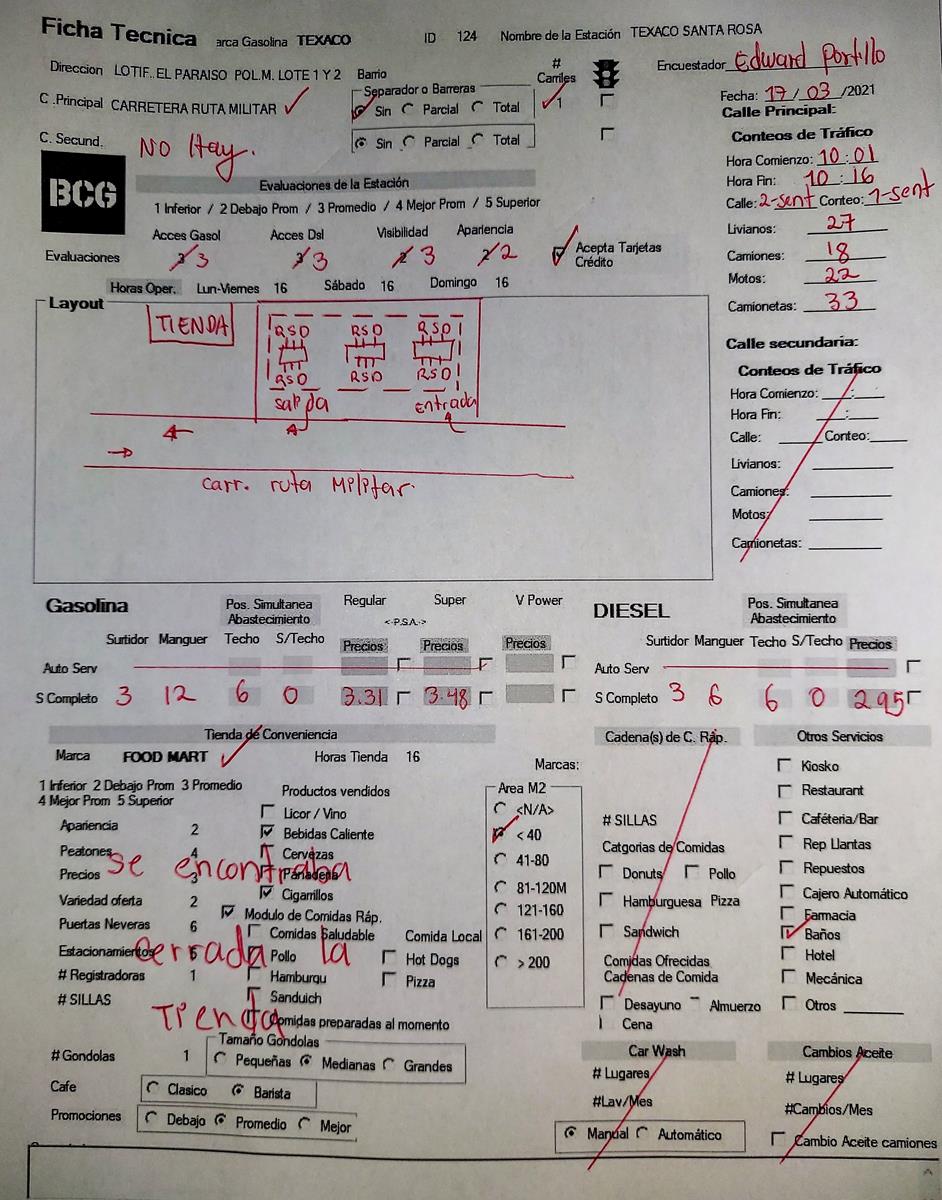 Ficha Tecnica arca Gasolina TEXACO ID 124 Nombre de la Estación TEXACO SANTA ROSA
Direccion LOTIF.. EL PARAISO POL.M. LOTE 1 Y 2 Barrio # Carriles Encuestador Edward Portillo
C .Principal CARRETERA RUTA MILITAR Separador o Barreras Sin Parcial Total 1 Fecha: 17 / 03 /2021
C. Secund. NO Hay. Sin Parcial Total
Calle Principal:
Conteos de Tráfico
Hora Comienzo: 10:01
Hora Fin: 10:16
Calle: 2-sent Conteo: 1-sent
Livianos: 27
Camiones: 18
Motos: 22
Camionetas: 33
BCG
Evaluaciones de la Estación
1 Inferior / 2 Debajo Prom / 3 Promedio / 4 Mejor Prom / 5 Superior
Acces Gasol Acces Dsl Visibilidad Apariencia
Evaluaciones 3 3 3 3 2 3 2 2 Acepta Tarjetas Crédito
Horas Oper. Lun-Viernes 16 Sábado 16 Domingo 16
Layout
TIENDA
RSD RSD RSD
RSD RSD RSD
salida entrada
carr. ruta Militar.
Calle secundaria:
Conteos de Tráfico
Hora Comienzo: __:__
Hora Fin: __:__
Calle: ____ Conteo:____
Livianos: ________
Camiones: ________
Motos: ________
Camionetas: ________
Gasolina Pos. Simultanea Abastecimiento Regular Super V Power
<-P.S.A.->
Surtidor Manguer Techo S/Techo Precios Precios Precios
Auto Serv
S Completo 3 12 6 0 3.31 3.48
DIESEL Pos. Simultanea Abastecimiento
Surtidor Manguer Techo S/Techo Precios
Auto Serv
S Completo 3 6 6 0 295
Tienda de Conveniencia
Marca FOOD MART Horas Tienda 16
1 Inferior 2 Debajo Prom 3 Promedio
4 Mejor Prom 5 Superior
Apariencia 2
Peatones 4
Precios 3
Variedad oferta 2
Puertas Neveras 6
Estacionamientos 5
# Registradoras 1
# SILLAS
se encontraba
cerrada la
Tienda
Productos vendidos
Licor / Vino
Bebidas Caliente
Cervezas
Panaderia
Cigarrillos
Modulo de Comidas Ráp.
Comidas Saludable Comida Local
Pollo Hot Dogs
Hamburgu Pizza
Sanduich
Comidas preparadas al momento
# Gondolas 1 Tamaño Gondolas Pequeñas Medianas Grandes
Cafe Clasico Barista
Promociones Debajo Promedio Mejor
Marcas:
Area M2
<N/A>
< 40
41-80
81-120M
121-160
161-200
> 200
Cadena(s) de C. Ráp.
# SILLAS
Catgorias de Comidas
Donuts Pollo
Hamburguesa Pizza
Sandwich
Comidas Ofrecidas
Cadenas de Comida
Desayuno Almuerzo
Cena
Otros Servicios
Kiosko
Restaurant
Caféteria/Bar
Rep Llantas
Repuestos
Cajero Automático
Farmacia
Baños
Hotel
Mecánica
Otros ______
Car Wash
# Lugares
#Lav/Mes
Manual Automático
Cambios Aceite
# Lugares
#Cambios/Mes
Cambio Aceite camiones